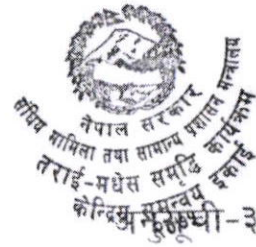 नेपाल सरकार
संघिय मामिला तथा सामान्य प्रशासन मन्त्रालय
तराई-मधेस समृद्धि कार्यक्रम
केन्द्रिय समन्वय इकाई
अनुसूची-३